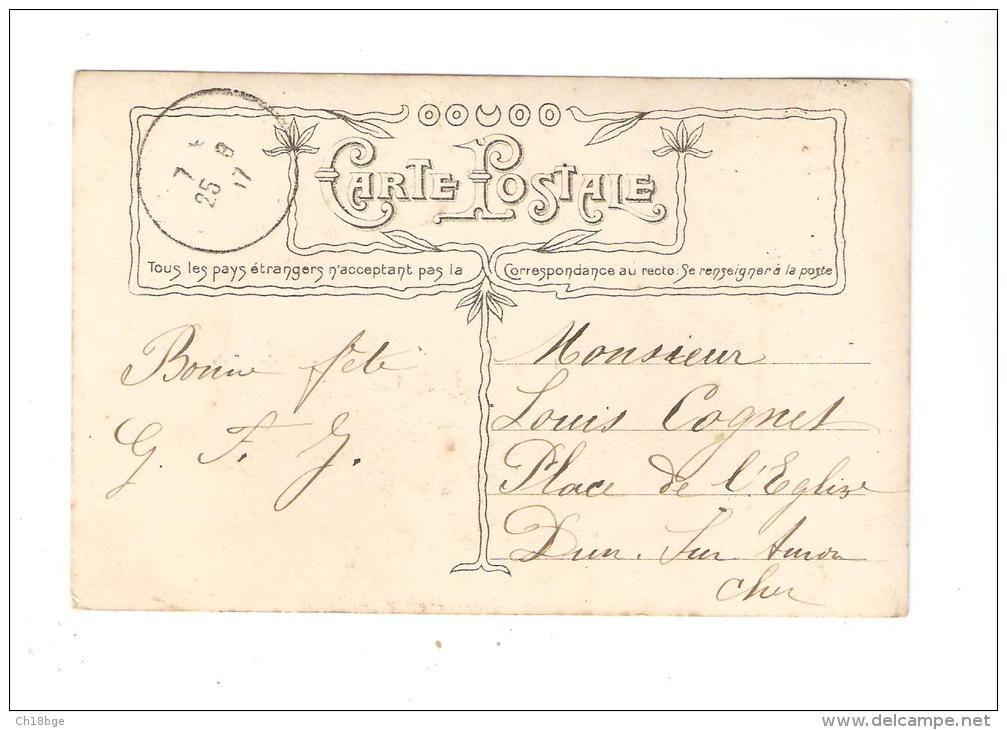 CARTE POSTALE
Tous les pays étrangers n'acceptant pas la Correspondance au recto. Se renseigner à la poste
7 8
25 17
Bonne fête
G. F. J.
Monsieur
Louis Cognet
Place de l'Eglize
Dun. Sur Auron
Cher
Ch18bge
www.delcampe.net